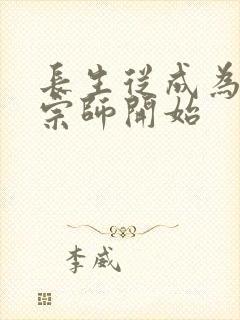 長生從成為
宗師開始
李威